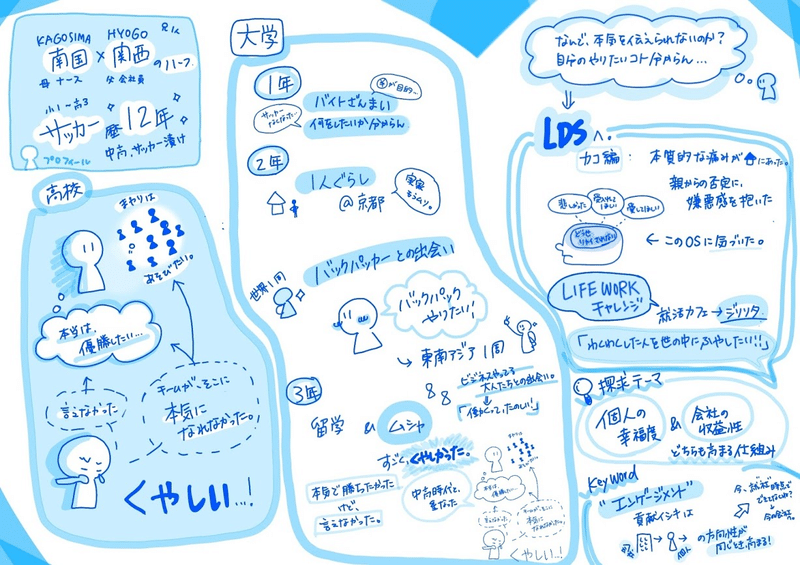 KAGOSIMA HYOGO
南国 × 関西 のハーフ
母 ナース 父 会社員
小1〜高3
サッカー歴12年
中高、サッカー漬け
プロフィール
高校
まわりは
あそびたい。
本当は、
優勝したい…
言えなかった
チームが、そこに
本気に
なれなかった。
くやしい…!
大学
1年
金が目的〜
バイトざんまい
サッカー
なくなった…
何をしたいか分からん
2年
1人ぐらし
@京都
バックパッカーとの出会い
世界1周
バックパック
やりたい!
東南アジア1周
ビジネスやってる
大人たちとの出会い。
「働くって、たのしい!」
3年
留学 & ムシャ
すごく、くやしかった。
本気で勝ちたかった
けど、
言えなかった。
中高時代と、
重なった
まわりは
あそびたい。
本当は、
優勝したい…
言えなかった
チームが、そこに
本気に
なれなかった。
くやしい…!
なんで、本気を伝えられないのか?
自分のやりたいコト分からん…
LDSへ。
カコ編: 本質的な痛みが にあった。
親からの否定に、
嫌悪感を抱いた
悲しかった
愛してほしい
← このOSに気づいた。
LIFE WORK
チャレンジ
就活カフェ → ジリリタ
「わくわくした人を世の中にふやしたい!!」
探求テーマ
個人の
幸福度
&
会社の
収益性
どちらも高まる仕組み
Keyword
"エンゲージメント"
貢献イシキは
個人
の方向性が
同じとき、高まる!